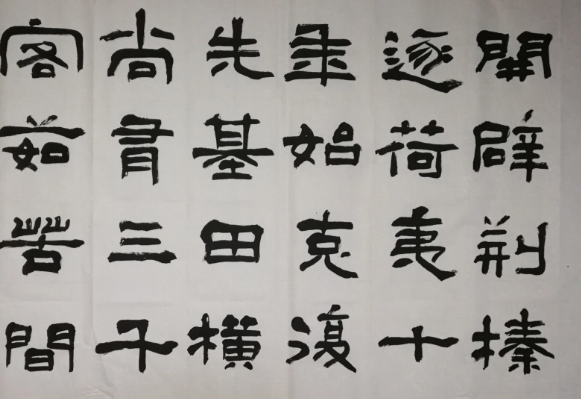 開辟荊榛
逐荷夷十
年始克復
先基田橫
尚有三千
客茹苦間